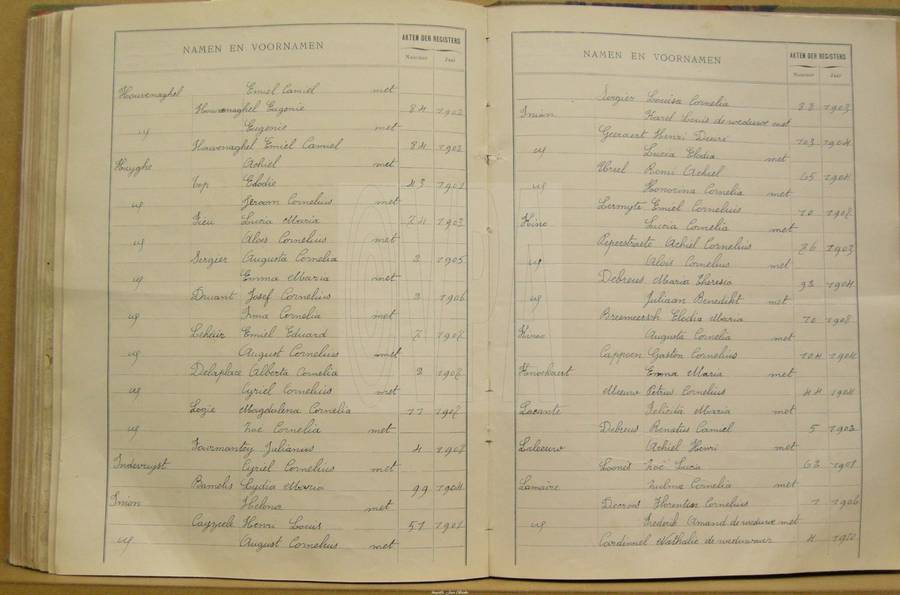 NAMEN EN VOORNAMEN AKTEN DER REGISTERS
Nummer Jaar
Houvenaghel Emiel Camiel met
Houvenaghel Eugenie 84 1902
id Eugenie met
Houvenaghel Emiel Camiel 84 1902
Huyghe Achiel met
Top Elodie 43 1901
id Jeroom Cornelius met
Lucia Maria 1903
id Aloïs Cornelius met
Sergier Augusta Cornelia 2 1905
id Emma Maria met
Druant Josef Cornelius 3 1906
id Irma Cornelia met
Emiel Eduard 7
id August Cornelius met
Delaplace Alberta Cornelia 3
id Cyriel Cornelius met
Lozie Magdalena Cornelia 11
id Zoë Cornelia met
Tourmantoy Julianus 4 1908
Indevuyst Cyriel Cornelius met
Bamelis Lydia Maria 99 1904
Inion Helena met
Henri Louis 51 1901
id August Cornelius met
NAMEN EN VOORNAMEN AKTEN DER REGISTERS
Nummer Jaar
Sergier Louisa Cornelia 1903
Inion Karel Louis de weduwe met
Geeraert Henri Désiré 103 1904
id Lucia Elodia met
Remi Achiel 65 1904
id Honorina Cornelia met
Lermyte Emiel Cornelius 10
Kino Lucia Cornelia met
Peperstraete Achiel Cornelius 26 1903
id Aloïs Cornelius met
Debreus Maria Theresia 93 1904
id Juliaan Benedikt met
Breemeersch Elodia Maria 10 1908
Augusta Cornelia met
Cappoen Gaston Cornelius 104 1904
Knockaert Emma Maria met
Meeuw Petrus Cornelius 44 1904
Lacante Felicita Maria met
Debreus Renatus Camiel 5 1902
Laleeuw Achiel Henri met
Zoë Lucia 63 1901
Lamaire Zulma Cornelia met
Florentin Cornelius 1 1906
id Frederik Amand de weduwe met
Cardinael Nathalie de weduwnaar 4 1910